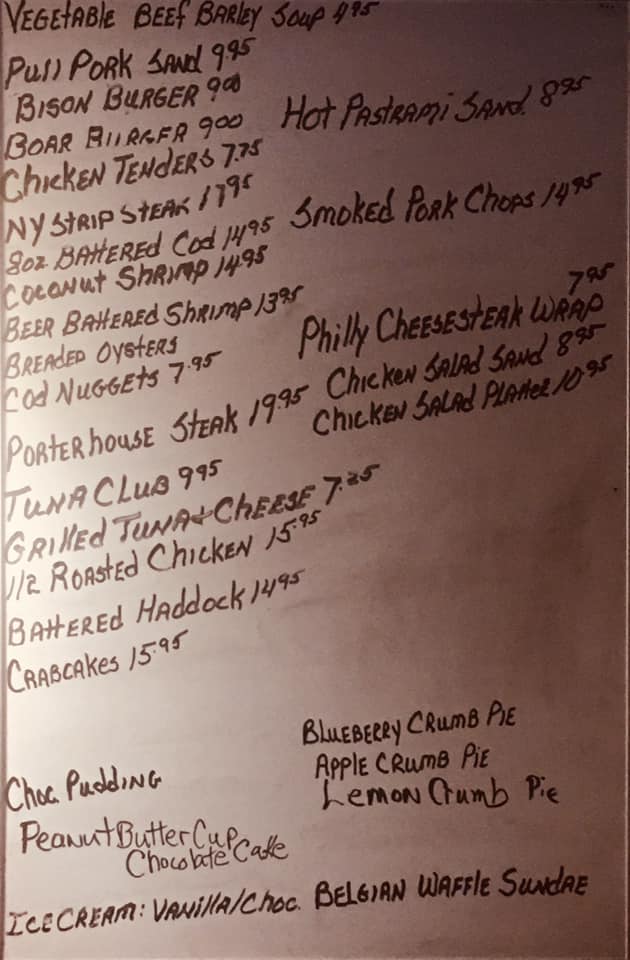 VEGETABLE BEEF BARLEY SOUP 4.95
Pull PORK SAND 9.95
BISON BURGER 9.00
BOAR BURGER 9.00
Hot PASTRAMi SAND. 8.95
Chicken TENDERS 7.75
NY STRIP STEAK 17.95
Smoked PORK Chops 14.95
8oz BATTERED Cod 14.95
Coconut Shrimp 14.95
BEER BATTERED Shrimp 13.95
BREADED OYSTERS
Cod NUGGETS 7.95
Philly CHEESESTEAK WRAP 7.95
Chicken SALAD SAND 8.95
Chicken SALAD PLATTER 10.95
PORTERhouse STEAK 19.95
TUNA CLUB 9.95
GRILLED TUNA & CHEESE 7.25
1/2 ROASTED Chicken 15.95
BATTERED HADDOCK 14.95
CRABCAKES 15.95
BLUEBERRY CRUMB PIE
APPLE CRUMB PIE
Lemon Crumb Pie
Choc. Pudding
Peanut Butter Cup
Chocolate Cake
ICE CREAM: VANIllA/Choc. BELGIAN WAFFLE SUNDAE